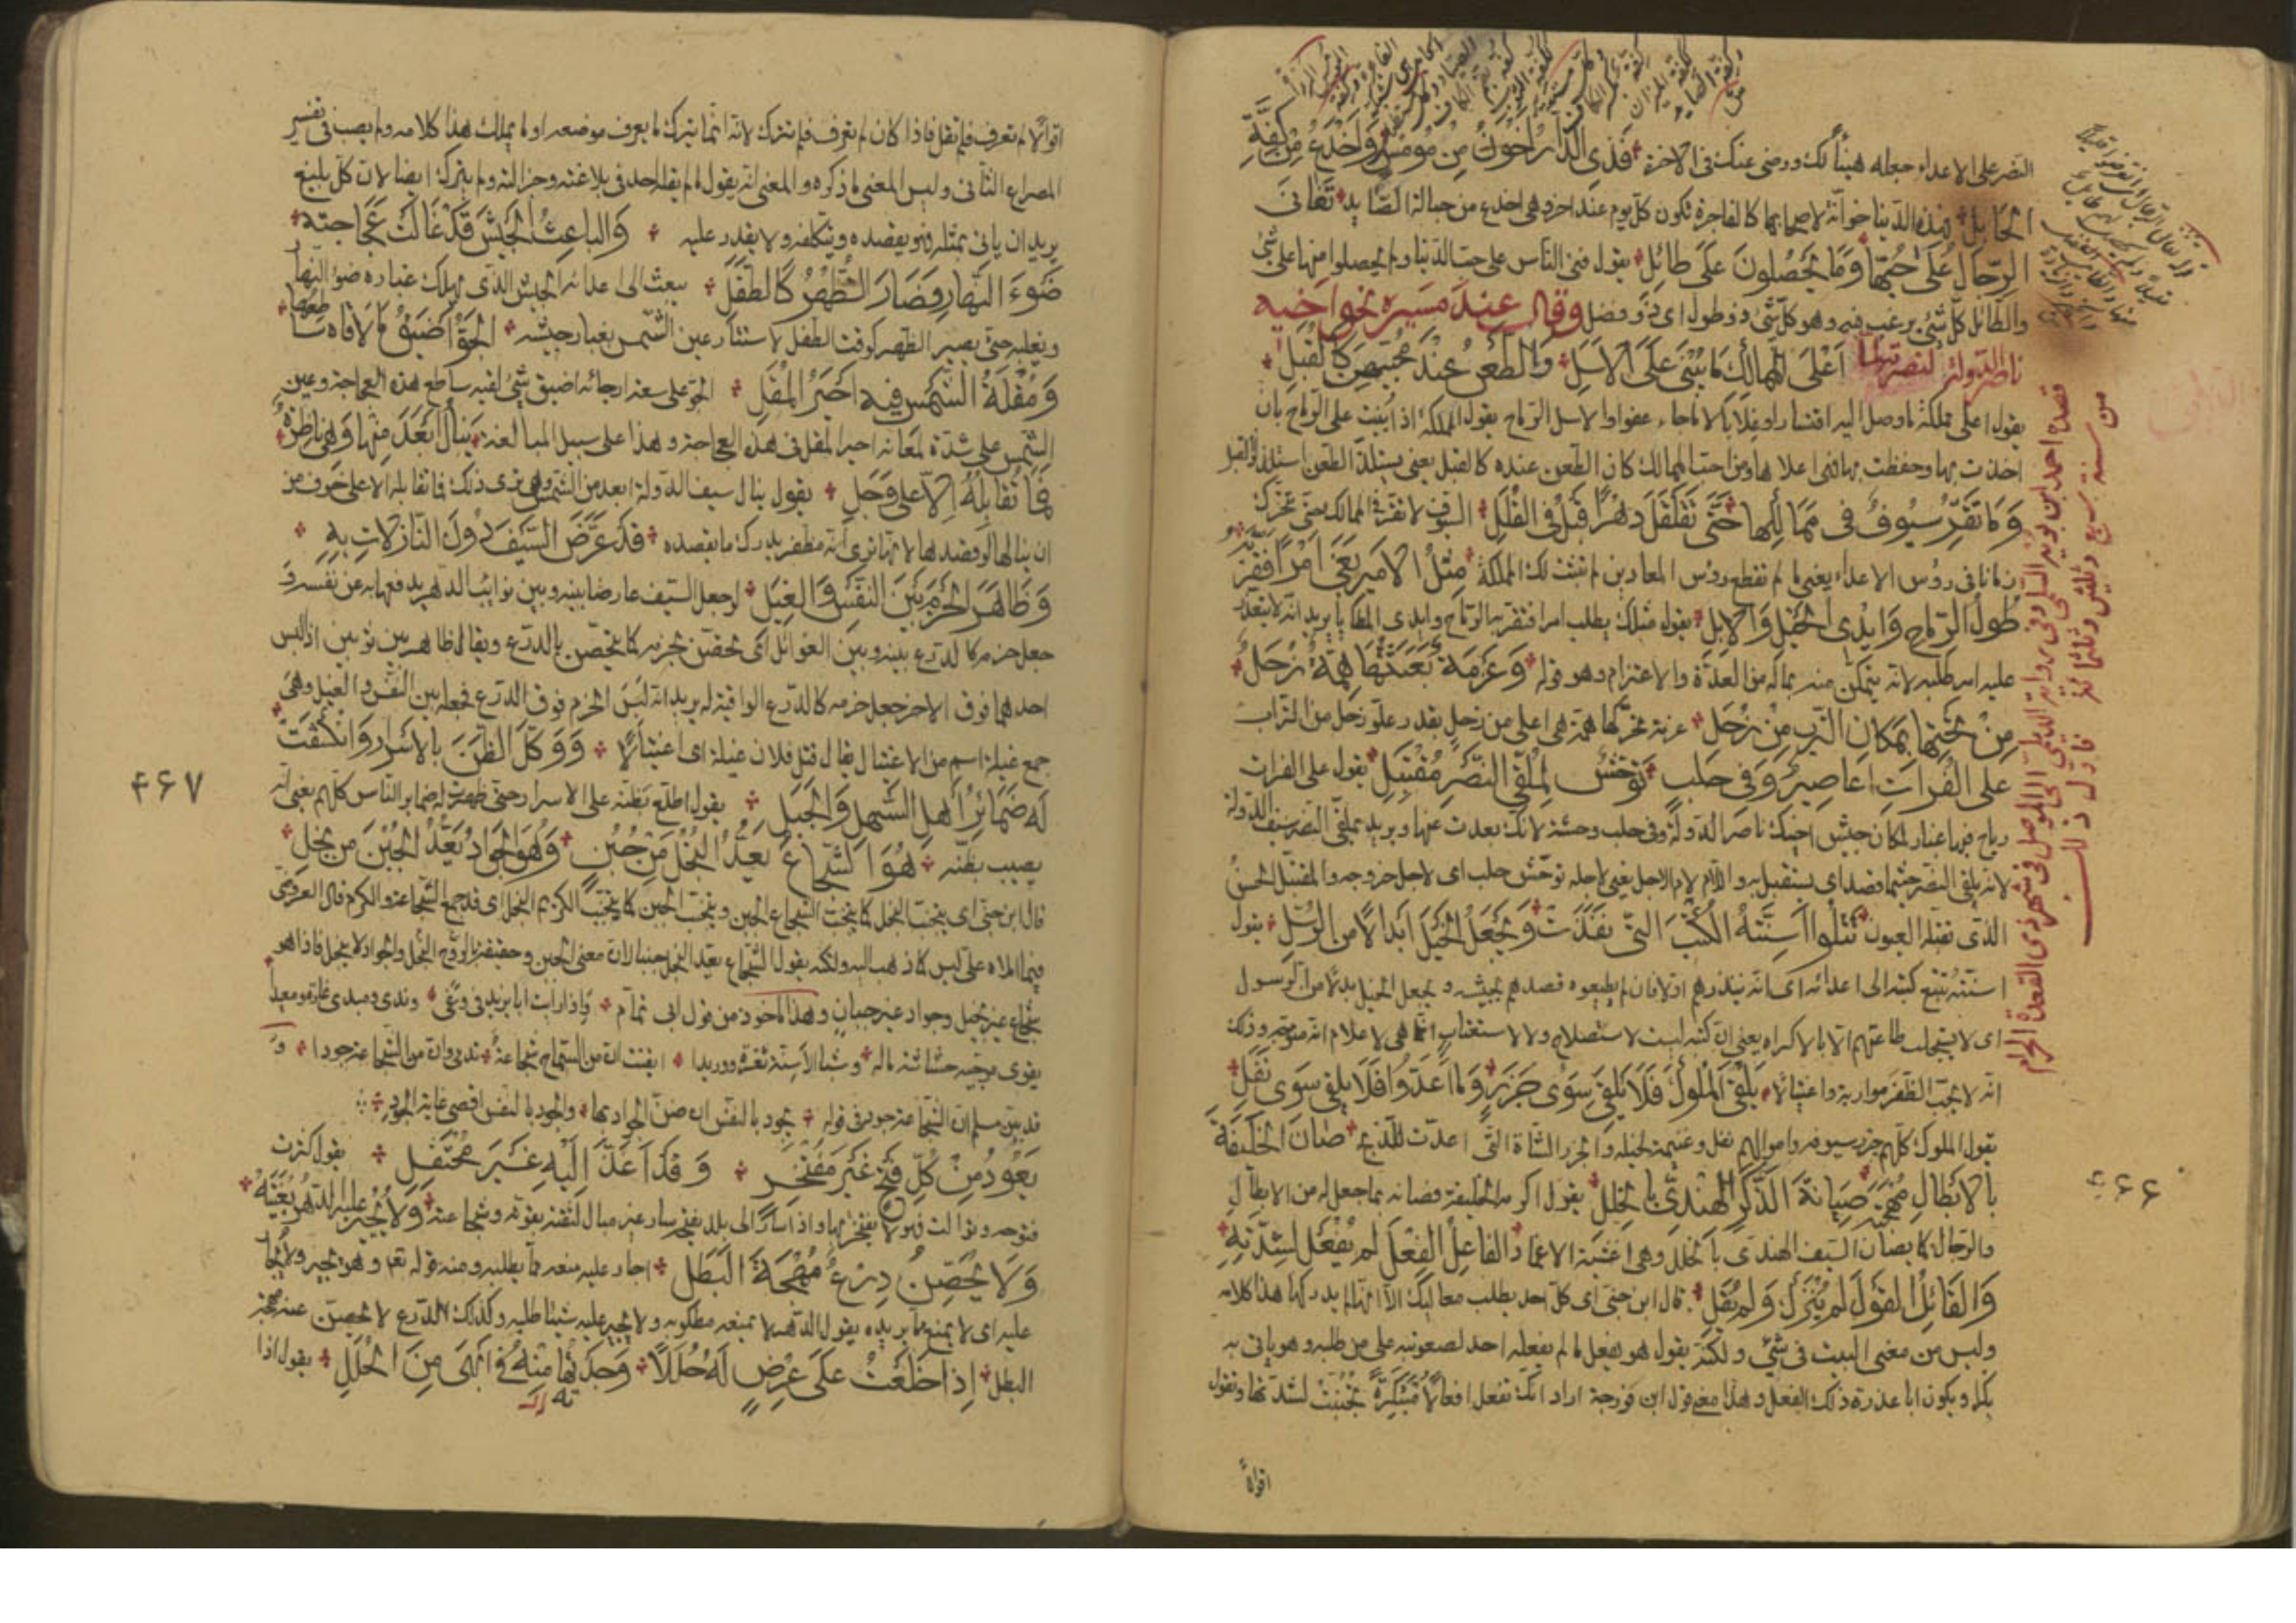 النصر على الاعداء جعله هنيأ لك ورضى عنك فى الاخرة فَذِى الدَّارُ اَخْوَنُ مِنْ مُومِسٍ وَاَخْدَعُ مِنْ كِفَّةِ
الْحَابِلِ هذه الدنيا خوانة لاصحابها كالفاجرة تكون كل يوم عند اخر وهى اخدع من حبالة الصايد تَفَانَى
الرِّجَالُ عَلَى حُبِّهَا وَمَا يَحْصُلُونَ عَلَى طَائِلِ يقول فنى الناس على حب الدنيا ولم يحصلوا منها على شئ
والطائل كل شئ يرغب فيه وهو كل شئ ذو طول اى ذو فضل وقال عند مسيره نحو اخيه
ناصر الدولة لنصرته لما اَعْلَى الْمَمَالِكِ مَا يُبْنَى عَلَى الْاَسَلِ وَالطَّعْنُ عِنْدَ مُحِبِّيهِنَّ كَالْقُبَلِ
يقول اعلى مملكة ما وصل اليه اقتسارا وغلابا لا ما جاء عفوا والاسل الرماح يقول المملكة اذا بنيت على الرماح بان
اخذت بها وحفظت بها فهى اعلاها ومن احب الممالك كان الطعن عنده كالقبل يعنى يستلذ الطعن استلذاذ القبل
وَمَا تَقِرُّ سُيُوفٌ فِى مَمَالِكِهَا حَتَّى تُقَلْقَلَ دَهْرًا قَبْلُ فِى الْقُلَلِ السيوف لا تقر فى الممالك حتى تحرك
زمانا فى رؤس الاعداء يعنى ما لم تقطع رؤس المعادين لم تثبت لك المملكة مِثْلُ الْاَمِيرِ بَغَى اَمْرًا فَقَرَّبَهُ
طُولُ الرِّمَاحِ وَاَيْدِى الْخَيْلِ وَالْاِبِلِ يقول مثلك يطلب امرا فتقربه الرماح وايدى المطايا يريد انه لا يتعذر
عليه امر طلبه لانه يتمكن منه بماله من العدة والاعتزام وهو قوله وَعَزْمَةٌ بَعَثَتْهَا هِمَّةٌ زُحَلٌ
مِنْ تَحْتِهَا بِمَكَانِ التُّرْبِ مِنْ زُحَلِ عزمة تحركها همة هى اعلى من زحل بقدر علو زحل من التراب
عَلَى الْفُرَاتِ اَعَاصِيرٌ وَفِى حَلَبٍ تَوَحُّشٌ لِمُلَقَّى النَّصْرِ مُقْتَبِلِ يقول على الفرات
رياح فيها غبار لمكان جيش اخيك ناصر الدولة وفى حلب وحشة لانك بعدت عنها ويريد بملقى النصر سيف الدولة
لانه يلقى النصر حيثما قصد اى يستقبل به واللام لام الاجل يعنى لاجله توحش حلب اى لاجل خروجه والمقتبل الحسن
الذى تقبله العيون تَتْلُو اَسِنَّتُهُ الْكُتْبَ الَّتِى نَفَذَتْ وَيَجْعَلُ الْخَيْلَ اَبْدَالًا مِنَ الرُّسُلِ يقول
اسنته تتبع كتبه الى اعدائه اى انه ينذرهم اولا فان لم يطيعوه قصدهم بجيشه ويجعل الخيل بدلا من الرسول
اى لا يستجلب طاعتهم الا بالاكراه يعنى ان كتبه ليست لاستصلاح ولا لاستعتاب انما هى لاعلام انه متوجه وذلك
انه لا يحب الظفر مواربة واغتيالا يَلْقَى الْمُلُوكَ فَلَا يَلْقَى سِوَى جَزَرٍ وَمَا اَعَدُّوا فَلَا يَلْقَى سِوَى نَفَلِ
يقول الملوك كلهم جزر سيوفه واموالهم نفل وغنيمة لخيله والجزر الشاة التى اعدت للذبح صَانَ الْخَلِيفَةُ
بِالْاَبْطَالِ مُهْجَتَهُ صِيَانَةَ الذَّكَرِ الْهِنْدِىِّ بِالْخِلَلِ يقول اكرمه الخليفة فصانه بما جعل له من الابطال
والرجال كما يصان السيف الهندى بالخلل وهى اغشية الاغماد اَلْفَاعِلُ الْفِعْلَ لَمْ يُفْعَلْ لِشِدَّتِهِ
وَالْقَائِلُ الْقَوْلَ لَمْ يُتْرَكْ وَلَمْ يُقَلِ قال ابن جنى اى كل احد يطلب معاليك الا انه لم يدركها هذا كلامه
وليس من معنى البيت فى شئ ولكنه يقول هو يفعل ما لم يفعله احد لصعوبته على من طلبه وهو يأتى به
بكرا ويكون ابا عذرة ذلك الفعل وهذا معنى قول ابن فورجة اراد انك تفعل افعالا مبتكرة تجنبت لشدتها وتقول
اقوالا
قصده احمد بن بويه الديلمى الى الموصل فى شهر ذى القعدة الحرام
من سنة سبع وثلثين وثلثمائة
۴۶۶
اقوالا لم تعرف فلم تقل فاذا كان لم تعرف فلم تترك لانه انما يترك ما يعرف موضعه او ما يملك هذا كلامه ولم يصب فى تفسير
المصراع الثانى وليس المعنى ما ذكره والمعنى انه يقول ما لم يقله احد فى بلاغته وجزالته ولم يترك ايضا لان كل بليغ
يريد ان ياتى بمثله فهو يقصده ويتكلفه ولا يقدر عليه وَالْبَاعِثُ الْجَيْشَ قَدْ غَالَتْ عَجَاجَتُهُ
ضَوْءَ النَّهَارِ فَصَارَ الظُّهْرُ كَالطَّفَلِ يبعث الى اعدائه الجيش الذى يهلك غباره ضوء النهار
ويغلبه حتى يصير الظهر كوقت الطفل لاستتار عين الشمس بغبار جيشه اَلْجَوُّ اَضْيَقُ مَا لَاقَاهُ سَاطِعُهَا
وَمُقْلَةُ الشَّمْسِ فِيهِ اَحْيَرُ الْمُقَلِ الجو على سعة ارجائه اضيق شئ لقيه ساطع هذه العجاجة وعين
الشمس على شدة لمعانه احير المقل فى هذه العجاجة وهذا على سبيل المبالغة يَنَالُ اَبْعَدَ مِنْهَا وَهْىَ نَاظِرَةٌ
فَمَا تُقَابِلُهُ اِلَّا عَلَى وَجَلِ يقول ينال سيف الدولة ابعد من الشمس وهى ترى ذلك فما تقابله الا على خوف من
ان ينالها لو قصدها لانها ترى انه مظفر يدرك ما يقصده قَدْ عَرَّضَ السَّيْفَ دُونَ النَّازِلَاتِ بِهِ
وَظَاهَرَ الْحَزْمَ بَيْنَ النَّفْسِ وَالْغِيَلِ اى جعل السيف عارضا بينه وبين نوائب الدهر يدفعها به عن نفسه و
جعل حزمه كالدرع بينه وبين الغوائل اى تحصن بحزمه كما يتحصن بالدرع ويقال ظاهر بين ثوبين اذا لبس
احدهما فوق الاخر جعل حزمه كالدرع الواقية له يريد انه لبس الحزم فوق الدرع فجعله بين النفس والغيل وهى
جمع غيلة اسم من الاغتيال يقال قتل فلان غيلة اى اغتيالا وَوَكَّلَ الظَّنَّ بِالْاَسْرَارِ وَانْكَشَفَتْ
لَهُ ضَمَائِرُ اَهْلِ السَّهْلِ وَالْجَبَلِ يقول اطلع بظنه على الاسرار حتى ظهرت له ضماير الناس كلهم يعنى انه
يصيب بظنه هُوَ الشُّجَاعُ يَعُدُّ الْبُخْلَ مِنْ جُبُنٍ وَهُوَ الْجَوَادُ يَعُدُّ الْجُبْنَ مِنْ بَخَلِ
قال ابن جنى اى يتجنب البخل كما يتجنب الشجاع الجبن ويتجنب الجبن كما يتجنب الكريم البخل اى قد جمع الشجاعة والكرم قال العروضى
فيما املاه على ليس كما ذهب اليه ولكنه يقول الشجاع يعد البخل جبنا لان معنى الجبن وحقيقته الروح البخل والجواد لا يبخل فاذا هو
شجاع غير بخيل وجواد غير جبان وهذا ماخوذ من قول ابى تمام وَاِذَا رَاَيْتَ اَبَا يَزِيدَ فِى وَغًى وندى ومبدى غارة ومعيدا
يقرى مرجيه حشاشة ماله وشبا الاسنة ثغرة ووريدا ايقنت ان من السماح شجاعة تدمى وان من الشجاعة جودا و
قد بين مسلم ان الشجاعة جود فى قوله يجود بالنفس ان ضن الجواد بها والجود بالنفس اقصى غاية الجود
يَعُودُ مِنْ كُلِّ فَتْحٍ غَيْرَ مُفْتَخِرٍ وَقَدْ اَغَذَّ اِلَيْهِ غَيْرَ مُحْتَفِلِ يقول كثرت
فتوحه وتوالت فهو لا يفتخر بها واذا سار الى بلد يفتحه سار غير مبال لثقته بقوته وشجاعته وَلَا يُجِيرُ عَلَيْهِ الدَّهْرُ بُغْيَتَهُ
وَلَا يُحَصِّنُ دِرْعٌ مُهْجَةَ الْبَطَلِ اجار عليه منعه مما يطلبه ومنه قوله تع وهو يجير ولا يجار
عليه اى لا يمنع مما يريده يقول الدهر لا يمنعه مطلوبه ولا يجير عليه شيئا طلبه وكذلك الدرع لا تحصن عنه مهجة
البطل اِذَا خَلَعْتُ عَلَى عِرْضٍ لَهُ حُلَلًا وَجَدْتُهَا مِنْهُ فِى اَبْهَى مِنَ الْحُلَلِ يقول اذا
۴۶۷